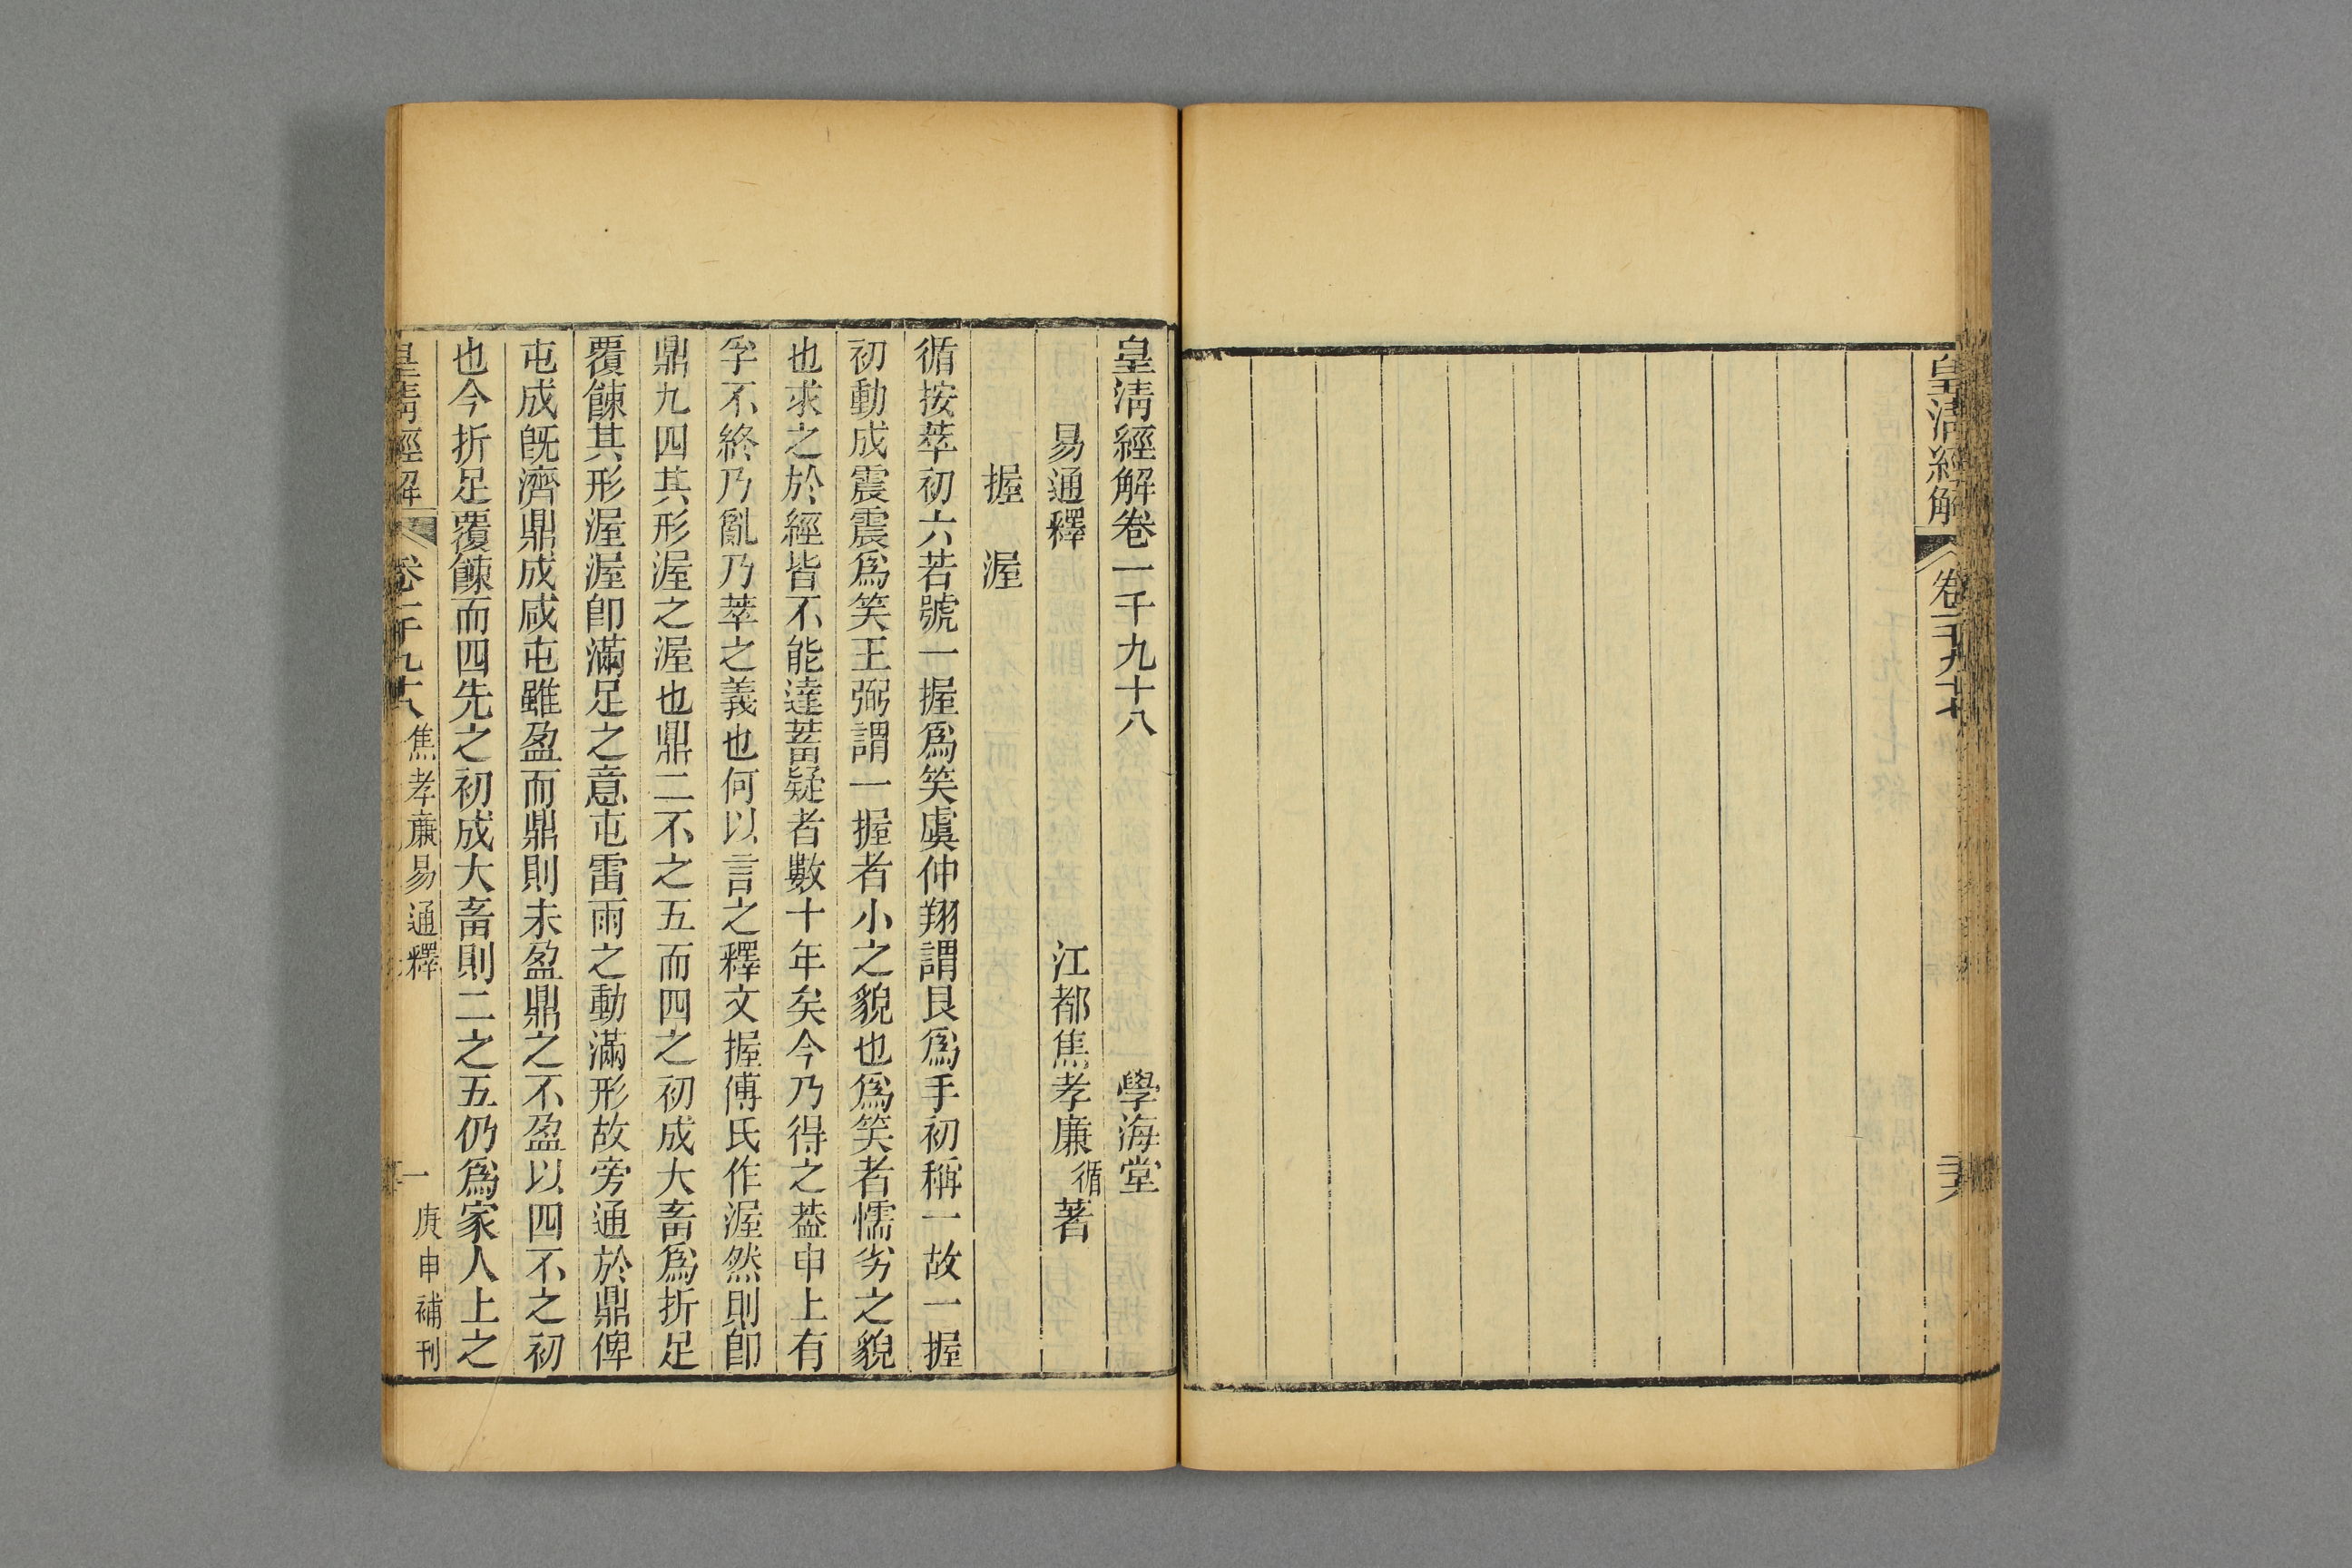 皇清經解
卷一千九十七
皇清經解卷一千九十八 學海堂
易通釋 江都焦孝廉循著
握 渥
循按萃初六若號一握爲笑虞仲翔謂艮爲手初稱一故一握
初動成震震爲笑王弼謂一握者小之貌也爲笑者懦劣之貌
也求之於經皆不能達蓄疑者數十年矣今乃得之葢申上有
孚不終乃亂乃萃之義也何以言之釋文握傅氏作渥然則卽
鼎九四其形渥之渥也鼎二不之五而四之初成大畜爲折足
覆餗其形渥渥卽滿足之意屯雷雨之動滿形故旁通於鼎俾
屯成旣濟鼎成咸屯雖盈而鼎則未盈鼎之不盈以四不之初
也今折足覆餗而四先之初成大畜則二之五仍爲家人上之
皇清經解 卷一千九十八 焦孝廉易通釋 一 庚申補刊